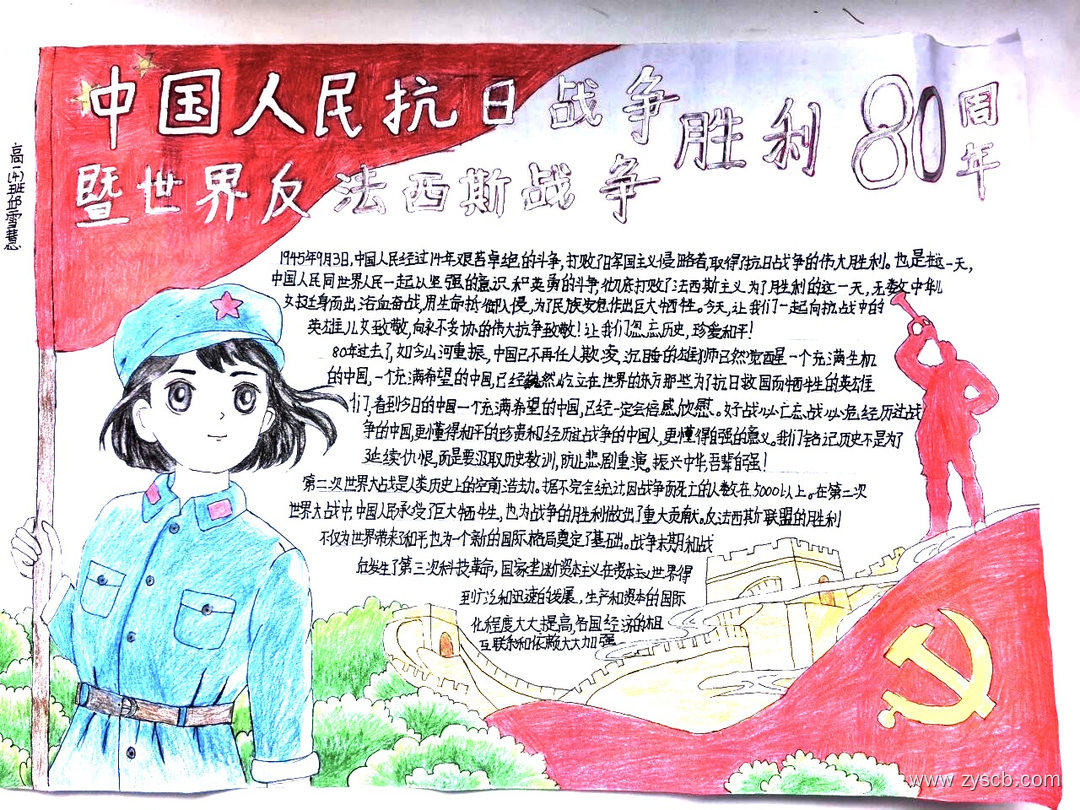 中国人民抗日战争胜利80周年
暨世界反法西斯战争
高一班邱雪慧
1945年9月3日,中国人民经过14年艰苦卓绝的斗争,打败了日军国主义侵略着,取得了抗日战争的伟大胜利。也是在这一天,
中国人民同世界人民一起以坚强的意识和英勇的斗争彻底打败了法西斯主义.为了胜利的这一天,无数中华儿
女挺身而出,浴血奋战,用生命抵御入侵,为了民族安危作出巨大牺牲。今天,让我们一起向抗战中的
英雄儿女致敬,向永不妥协的伟大抗争致敬!让我们勿忘历史,珍爱和平!
80年过去了,如今山河重振,中国已不再任人欺凌,沉睡的雄狮已然觉醒一个充满生机
的中国,一个充满希望的中国,已经巍然屹立在世界的东方那些为了抗日救国而牺牲的英雄
们,看到今日的中国一个充满希望的中国,已经一定会倍感欣慰。好战必亡忘战必危,经历过战
争的中国,更懂得和平的珍贵和经历过战争的中国人,更懂得自强的意义。我们铭记历史不是为了
延续仇恨,而是要汲取历史教训,防止悲剧重演。振兴中华吾辈自强!
第二次世界大战是人类历史上的空前浩劫。据不完全统计因战争而死亡的人数在5000以上。在第二次
世界大战中,中国人民承受了巨大牺牲,也为战争的胜利做出了重大贡献。反法西斯联盟的胜利
不仅为世界带来了和平也为一个新的国际格局奠定了基础。战争末期和战
后发生了第三次科技革命,国家垄断资本主义在资本主义世界得
到广泛和迅速的发展,生产和资本的国际
化程度大大提高,各国经济的相
互联系和依赖大大加强
www.zyscb.com